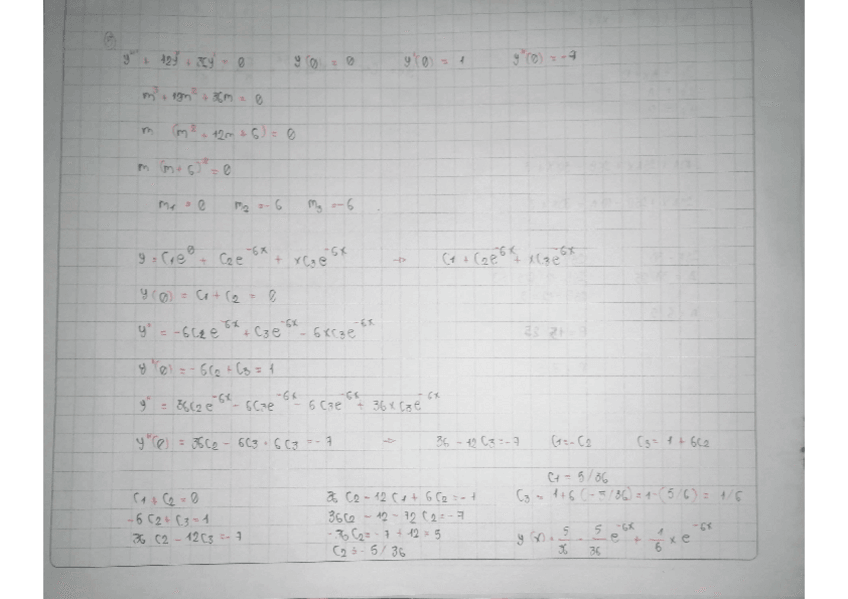 y''' + 12y'' + 36y' = 0 y(0) = 0 y'(0) = 1 y''(0) = -7
m³ + 12m² + 36m = 0
m (m² + 12m + 6) = 0
m (m+6)² = 0
m1 = 0 m2 = -6 m3 = -6
y = C1e^0 + C2e^-6x + xC3e^-6x → C1 + C2e^-6x + xC3e^-6x
y(0) = C1 + C2 = 0
y' = -6C2e^-6x + C3e^-6x - 6xC3e^-6x
y'(0) = -6C2 + C3 = 1
y'' = 36C2e^-6x - 6C3e^-6x - 6C3e^-6x + 36xC3e^-6x
y''(0) = 36C2 - 6C3 + 6C3 = -7 → 36 - 12C3 = -7 C1 = -C2 C3 = 1 + 6C2
C1 = 5/36
C1 + C2 = 0 36C2 - 12C1 + 6C2 = -1 C3 = 1+6(-5/36) = 1-(5/6) = 1/6
-6C2 + C3 = 1 36C2 - 12 - 72C2 = -7
36C2 - 12C3 = -7 -36C2 = -7 + 12 = 5 y(x) = 5/36 - 5/36 e^-6x + 1/6 x e^-6x
C2 = -5/36